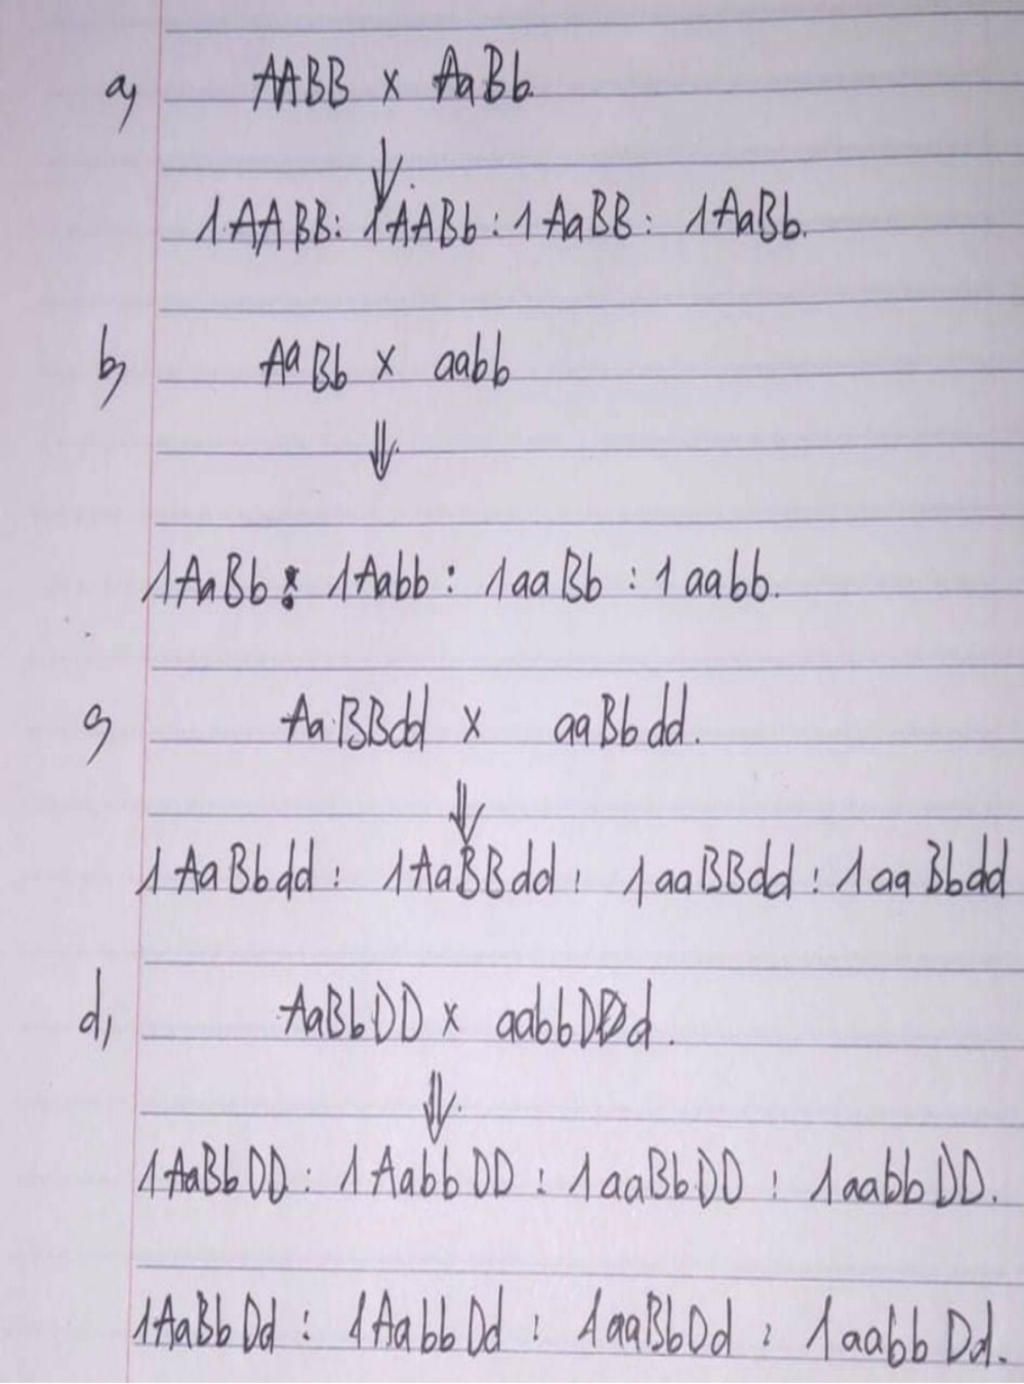 a, AABB x AaBb.
⇓
1AABB: 1AABb : 1AaBB: 1AaBb.
b, AaBb x aabb
⇓
1AaBb : 1Aabb : 1aaBb : 1aabb.
c, AaBBdd x aaBbdd.
⇓
1AaBbdd : 1AaBBdd : 1aaBBdd : 1aaBbdd
d, AaBbDD x aabbDd.
⇓
1AaBbDD : 1AabbDD : 1aaBbDD : 1aabbDD.
1AaBbDd : 1AabbDd : 1aaBbDd : 1aabbDd.